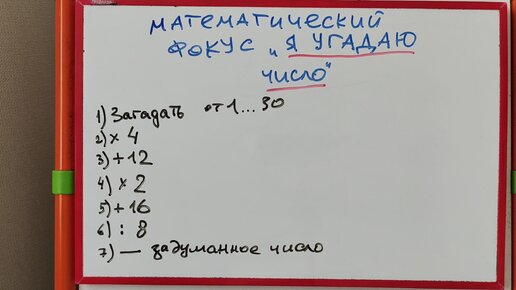 МАТЕМАТИЧЕСКИЙ
ФОКУС „Я УГАДАЮ
ЧИСЛО"
1) Загадать от 1 ... 30
2) × 4
3) + 12
4) × 2
5) + 16
6) : 8
7) — задуманное число